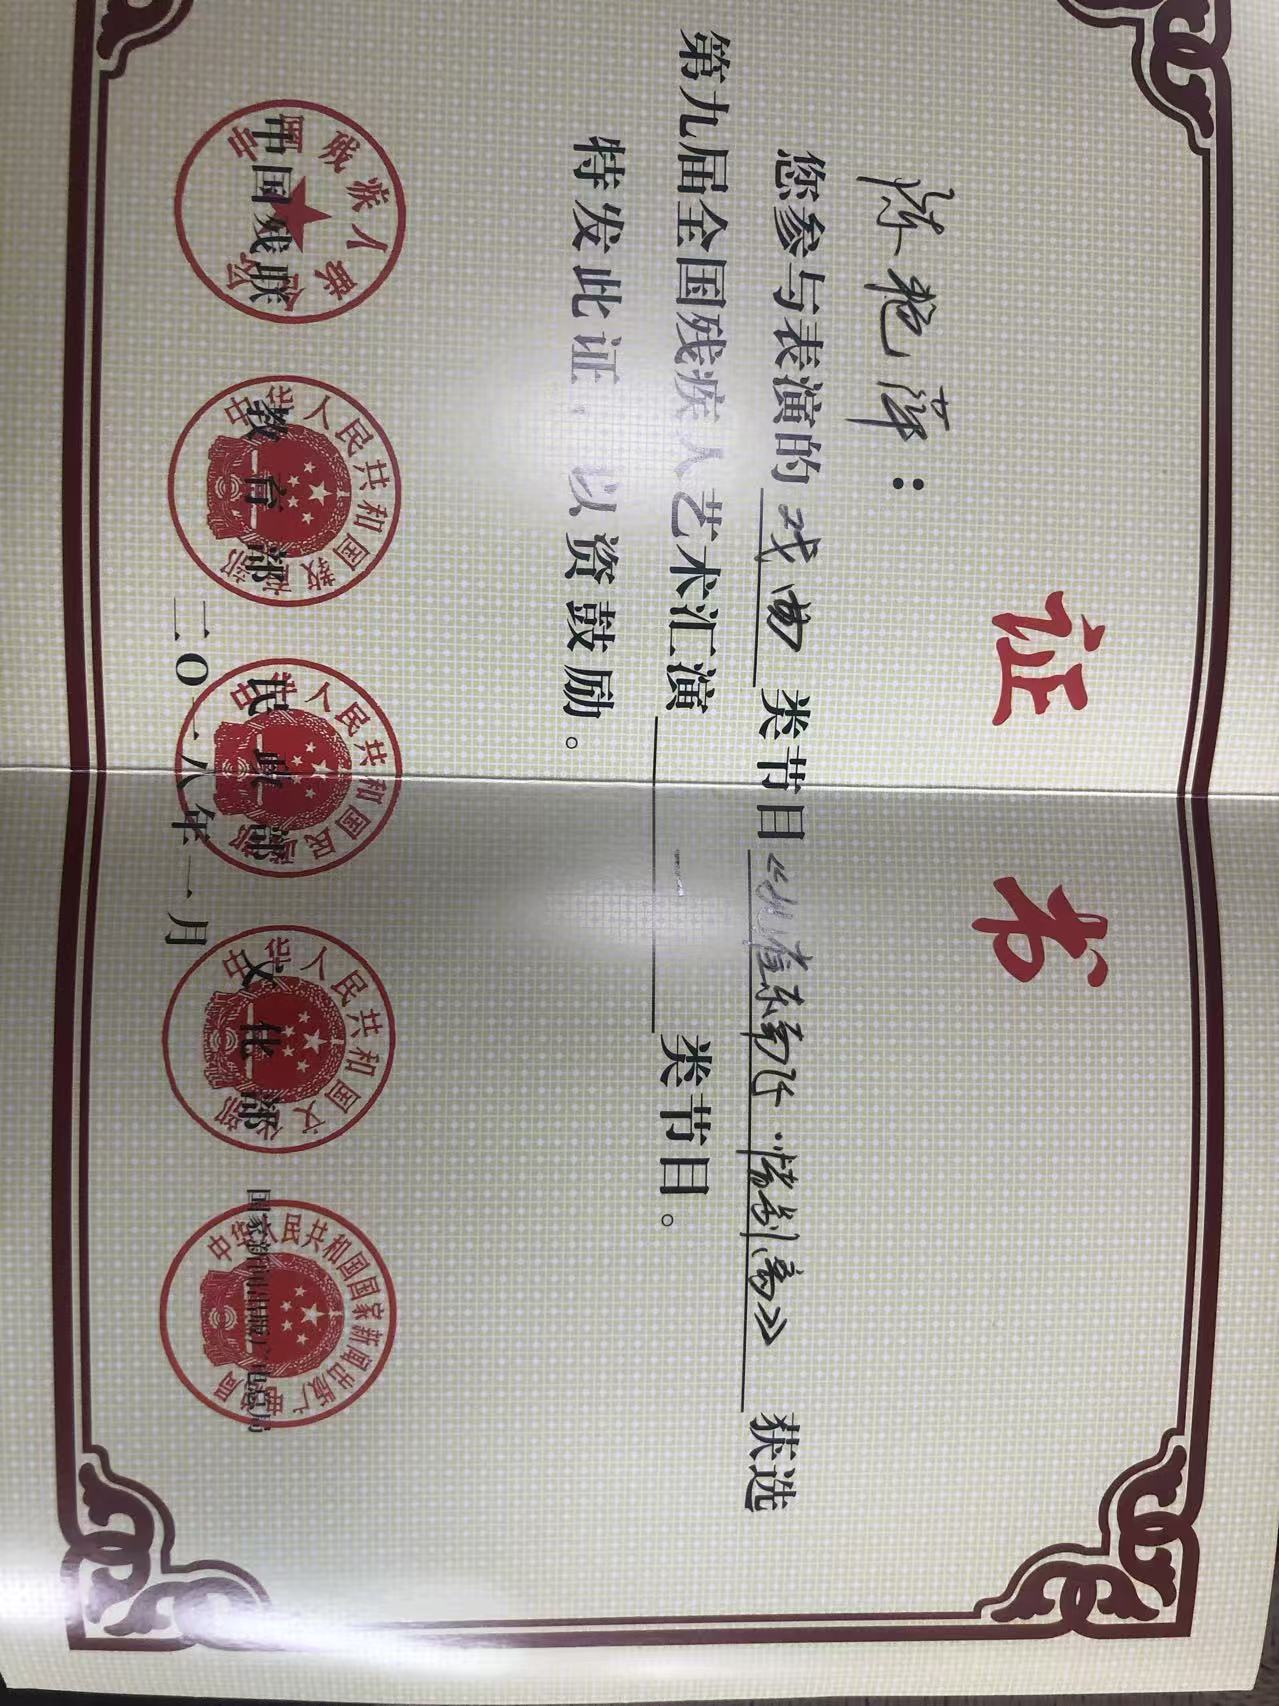 证书
陈艳萍：
您参与表演的戏曲类节目《孔雀东南飞·惜别离》获选
第九届全国残疾人艺术汇演一类节目。
特发此证，以资鼓励。
中国残联 教育部 民政部 文化部 国家新闻出版广电总局
二〇一八年一月
中国残疾人联合会
中华人民共和国教育部
中华人民共和国民政部
中华人民共和国文化部
中华人民共和国国家新闻出版广电总局